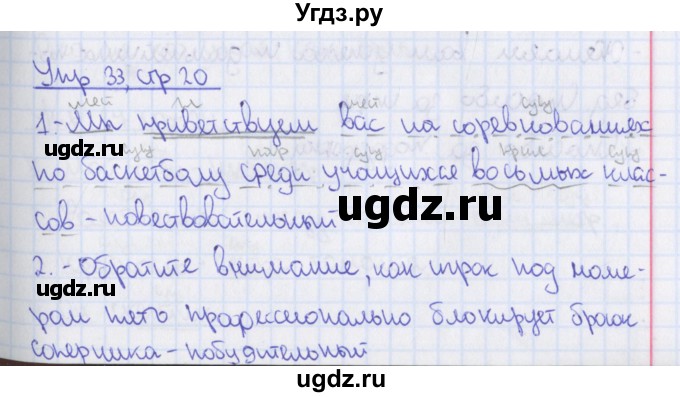 Угдз.ру
Упр 33, стр 20
мест гл мест сущ
1.- Мы приветствуем вас на соревнованиях
сущ нар сущ прил сущ
по баскетболу среди учащихся восьмых клас-
сов - повествовательный
2. - Обратите внимание, как игрок под номе-
ром пять профессионально блокирует бросок
соперника - побудительный
ugdz.ru
ugdz.ru
ugdz.ru
ugdz.ru
ugdz.ru